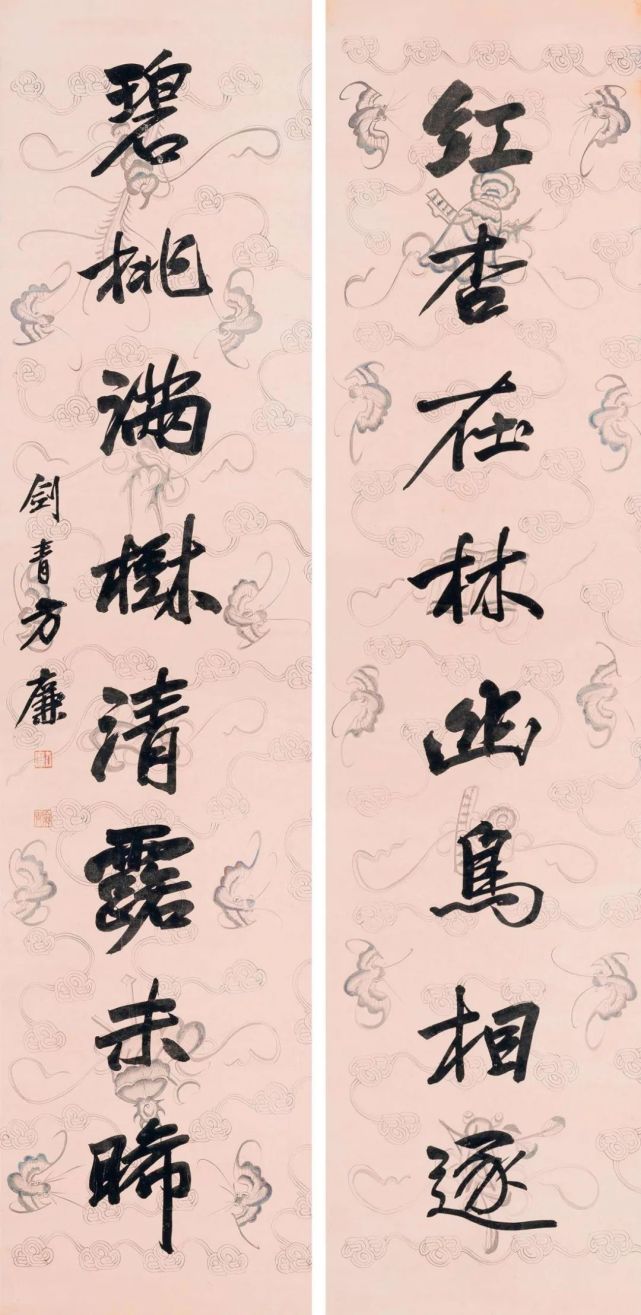 红杏在林幽鳥相逐
碧桃滿樹清露未晞
剑青方廉